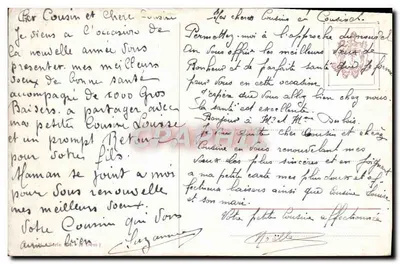 Cher Cousin et Chère Cousine
je viens à l'occasion de
la nouvelle année vous
présenter mes meilleurs
voeux de bonne santé
accompagné de 1000 Gros
Baisers. a partager avec
ma petite Cousine Louise
et un prompt Retour
pour votre fils.
Maman se joint a moi
pour vous renouvelle
mes meilleurs voeux.
Votre Cousin qui vous
aime bien.
Suzanne
Mes chers Cousins et Cousines
Permettez-moi à l'approche du nouvel
An vous offrir les meilleurs vœux de
Bonheur et de parfaite santé que je forme
pour vous en cette occasion.
J'espère que vous allez bien chez nous
la santé est excellente.
Bonjour à Mr et Mme
cher Cousin et chère
Cousine en vous renouvelant mes
vœux des plus sincères et en joignant
a ma petite carte mes plus doux et af
fectueux baisers ainsi que Cousine Louise
et son mari.
Votre petite Cousine affectionnée